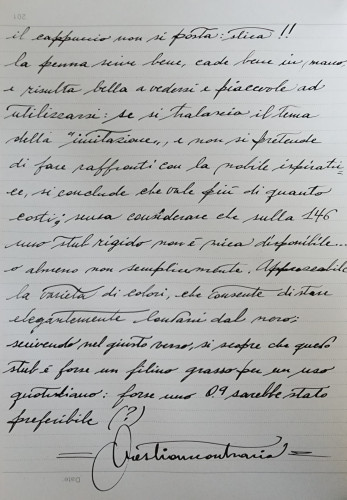 il cappuccio non si posta: stica!!
la penna scrive bene, cade bene in mano
e risulta bella a vedersi e piacevole ad
utilizzarsi: se si tralascia il tema
della "imitazione,, e non si pretende
di fare raffronti con la nobile ispiratri=
ce, si conclude che vale più di quanto
costi; senza considerare che sulla 146
uno stub rigido non è mica disponibile...
o almeno non semplicemente. Apprezzabile
la varietà di colori, che consente di stare
elegantemente lontani dal nero;
scrivendo, nel giusto verso, si scopre che questo
stub è forse un filino grasso per un uso
quotidiano: forse uno 0.9 sarebbe stato
preferibile (?)
Date